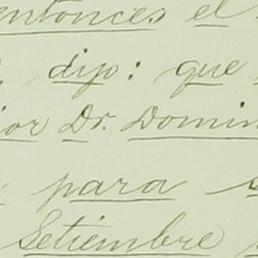 entonces el
dijo: que
ior Dr. Domin
para
Setiembre